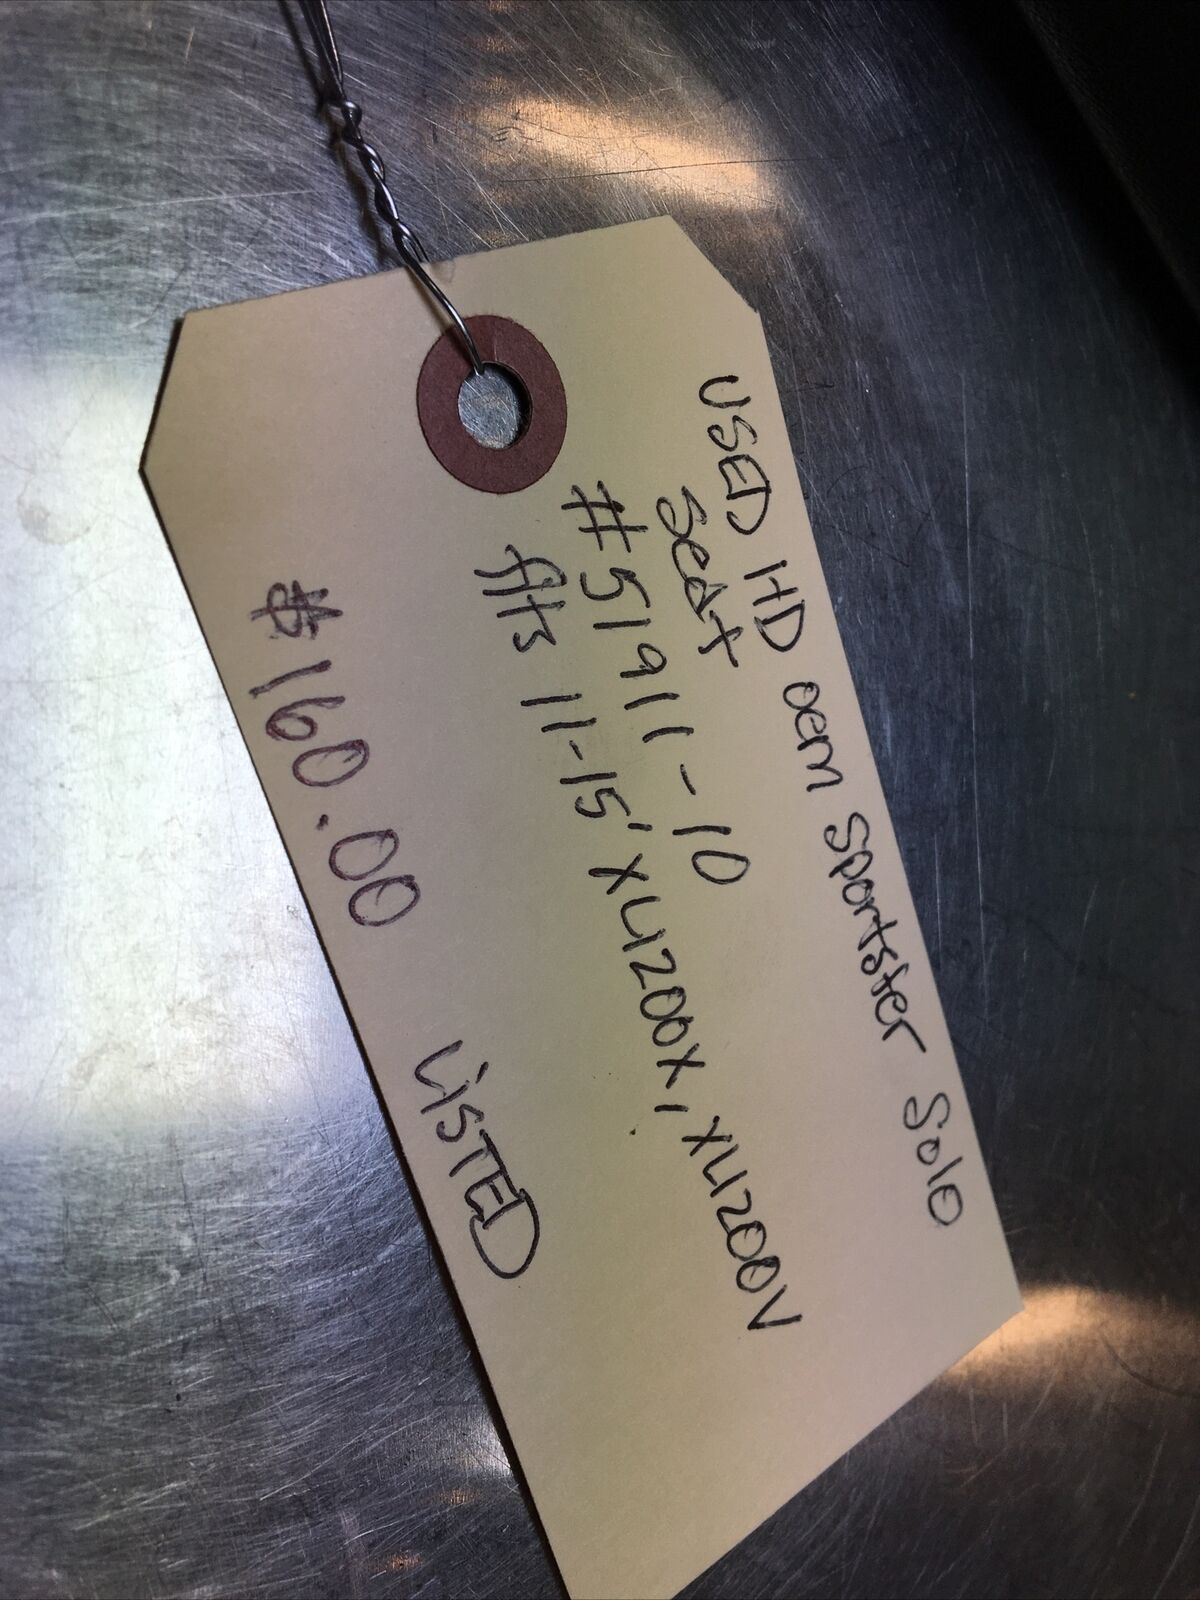 USED HD oem Sportster Solo
Seat
#51911-10
fits 11-15' XL1200X, XL1200V
$160.00 LiSTED